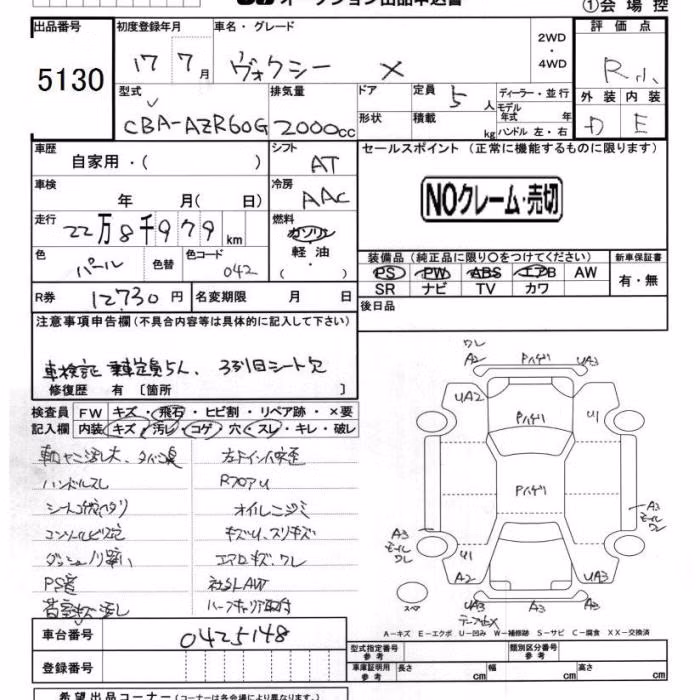 オークション出品申込書 ①会場控
出品番号 初度登録年月 車名・グレード 2WD・4WD 評価点
5130 17 7月 ヴォクシー X R
型式 排気量 ドア 定員 5人 ディーラー・並行 外装 内装
CBA-AZR60G 2000cc 形状 積載 kg モデル年式 年 ハンドル 左・右 D E
車歴 シフト セールスポイント (正常に機能するものに限ります)
自家用・( ) AT
車検 冷房 NOクレーム・売切
年 月( 日) AAC
走行 燃料
22万8千979km ガソリン
色 色替 色コード 軽油 装備品(純正品に限り○をつけてください) 新車保証書
パール 042 ( ) PS PW ABS エアB AW 有・無
SR ナビ TV カワ
R券 12730円 名変期限 月 日 後日品
注意事項申告欄(不具合内容等は具体的に記入して下さい)
車検証 乗車定員5人、3列目シート欠
修復歴 有 〔箇所 〕
検査員 FW キズ・飛石・ヒビ割・リペア跡・×要
記入欄 内装 キズ・汚レ・コゲ・穴・スレ・キレ・破レ
ハンドルスレ RフロアU
オイルニジミ
キズU、スリキズ
エアロキズ、ワレ
PS音 社外AW
ワレ
A2 Pハゲ UA3
UA2 Pハゲ U1
Pハゲ
A3 A3
モール モール
ワレ ワレ
U1
A2 UA3
スペア UA3 A3 UA3
A-キズ E-エクボ U-凹み W-補修跡 S-サビ C-腐食 XX-交換済
車台番号 0425148 型式指定番号 参考 類別区分番号 参考
登録番号 車庫証明用 参考 長さ cm 幅 cm 高さ cm
希望出品コーナー(コーナーは各会場により異なります。)